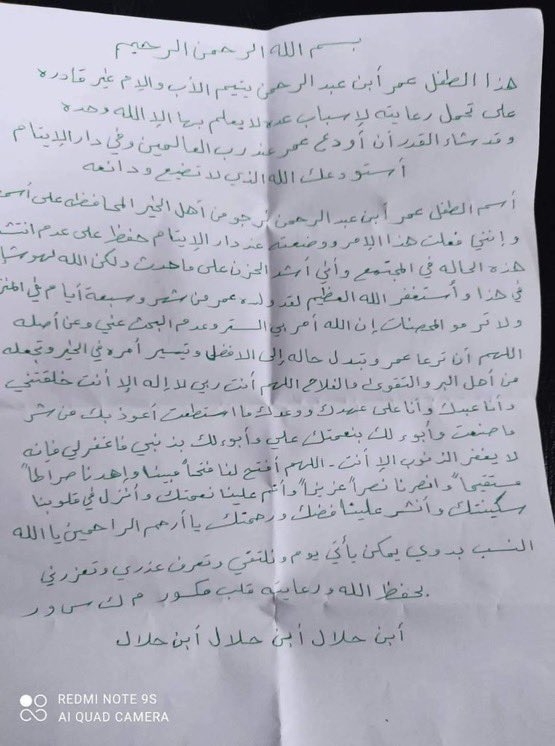 بسم الله الرحمن الرحيم
هذا الطفل عمر أبن عبد الرحمن يتيم الأب والام غير قادره
على تحمل رعايته لإسباب عده لا يعلم بها الا الله وحده
وقد شاء القدر أن أودع عمر عند رب العالمين وفي دار الايتام
أستودعك الله الذي لا تضيع ودائعه
أسم الطفل عمر أبن عبد الرحمن نرجو من أهل الخير المحافظه على أسمه
وإنني فعلت هذا الامر ووضعته عند دار الايتام حفظ على عدم انتشا
هذه الحاله في المجتمع وأني أشد الحزن على ما حدث ولكن الله لهو شيأ
في هذا وأستغفر الله العظيم لقد ولده عمر من شهر وسبعة أيام في المنز
ولا ترمو المحصنات إن الله أمر بي الستر وعدم البحث عني وعن أصله
اللهم أن ترعا عمر وتبدل حاله إلى الافضل وتيسير أمره في الخير وتجعله
من أهل البر والتقوى والفلاح اللهم أنت ربي لا إله إلا أنت خلقتني
وأنا عبدك وأنا على عهدك ووعدك ما استطعت أعوذ بك من شر
ما صنعت وأبوء لك بنعمتك علي وأبوء لك بذنبي فاغفر لي فإنه
لا يغفر الذنوب الا أنت - اللهم أفتح لنا فتحاً مبينا وإهدنا صراطاً
مستقيماً وانصرنا نصراً عزيزاً وأتم علينا نعمتك وأنزل في قلوبنا
سكينتك وأنشر علينا فضلك ورحمتك يا أرحم الراحمين يا الله
النسب بدوي يمكن يأتي يوم ونلتقي وتعرف عذري وتعزرني
بحفظ الله ورعايته قلب مكسور م ك س و ر
أبن حلال أبن حلال أبن حلال
REDMI NOTE 9S
AI QUAD CAMERA